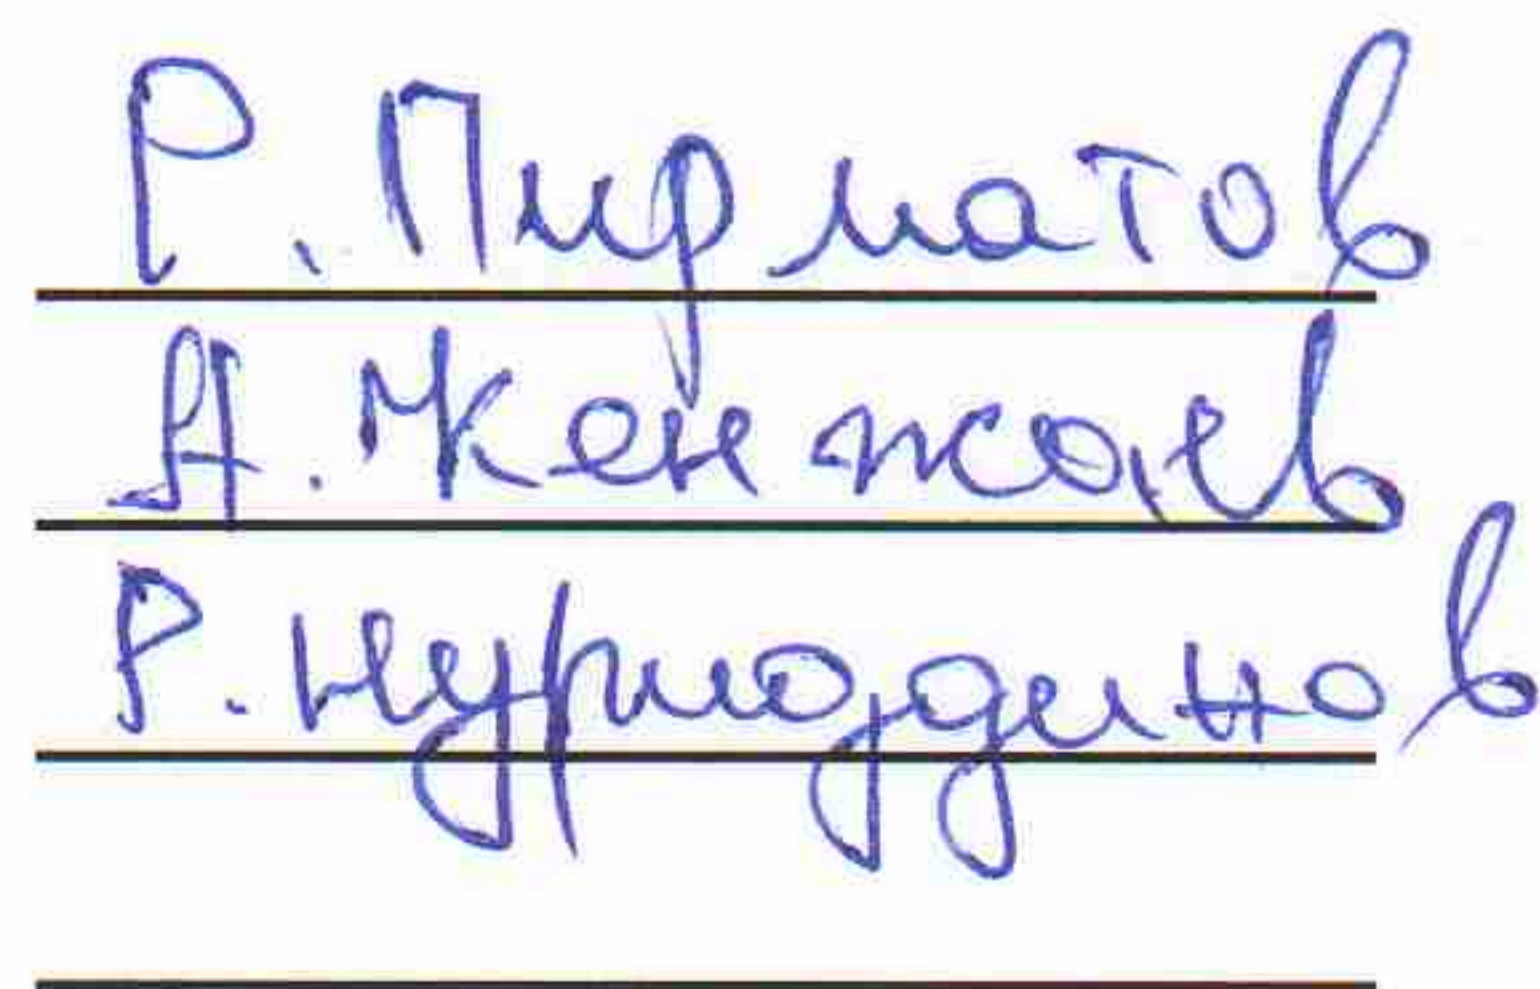 Р. Пирматов
А. Кенжаев
Р. Нуриддинов